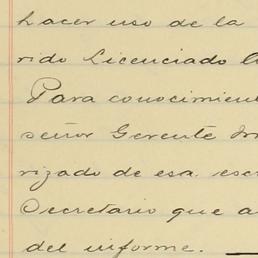 hacer uso de la
rido Licenciado
Para conocimien
señor Gerente
rizado de esa esc
Secretario que a
del informe.